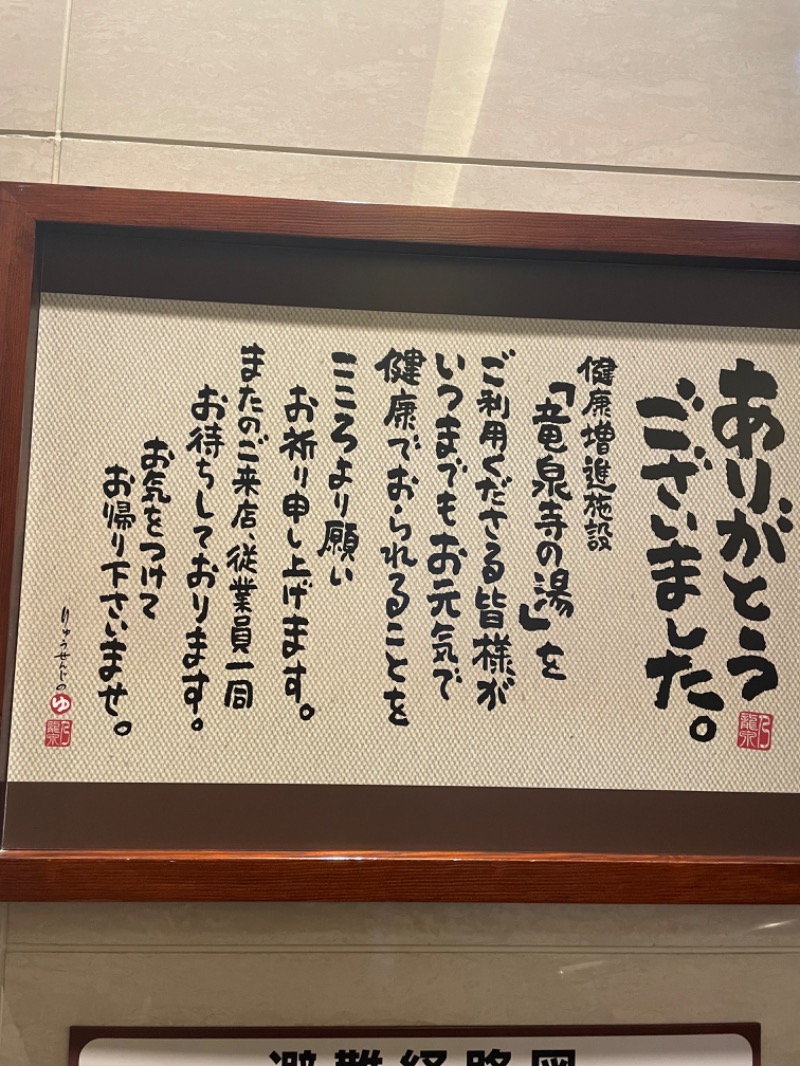 ありがとう
ございました。
健康増進施設
「竜泉寺の湯」を
ご利用くださる皆様が
いつまでもお元気で
健康でおられることを
こころより願い
お祈り申し上げます。
またのご来店、従業員一同
お待ちしております。
お気をつけて
お帰り下さいませ。
りゅうせんじの
ゆ
避難経路図